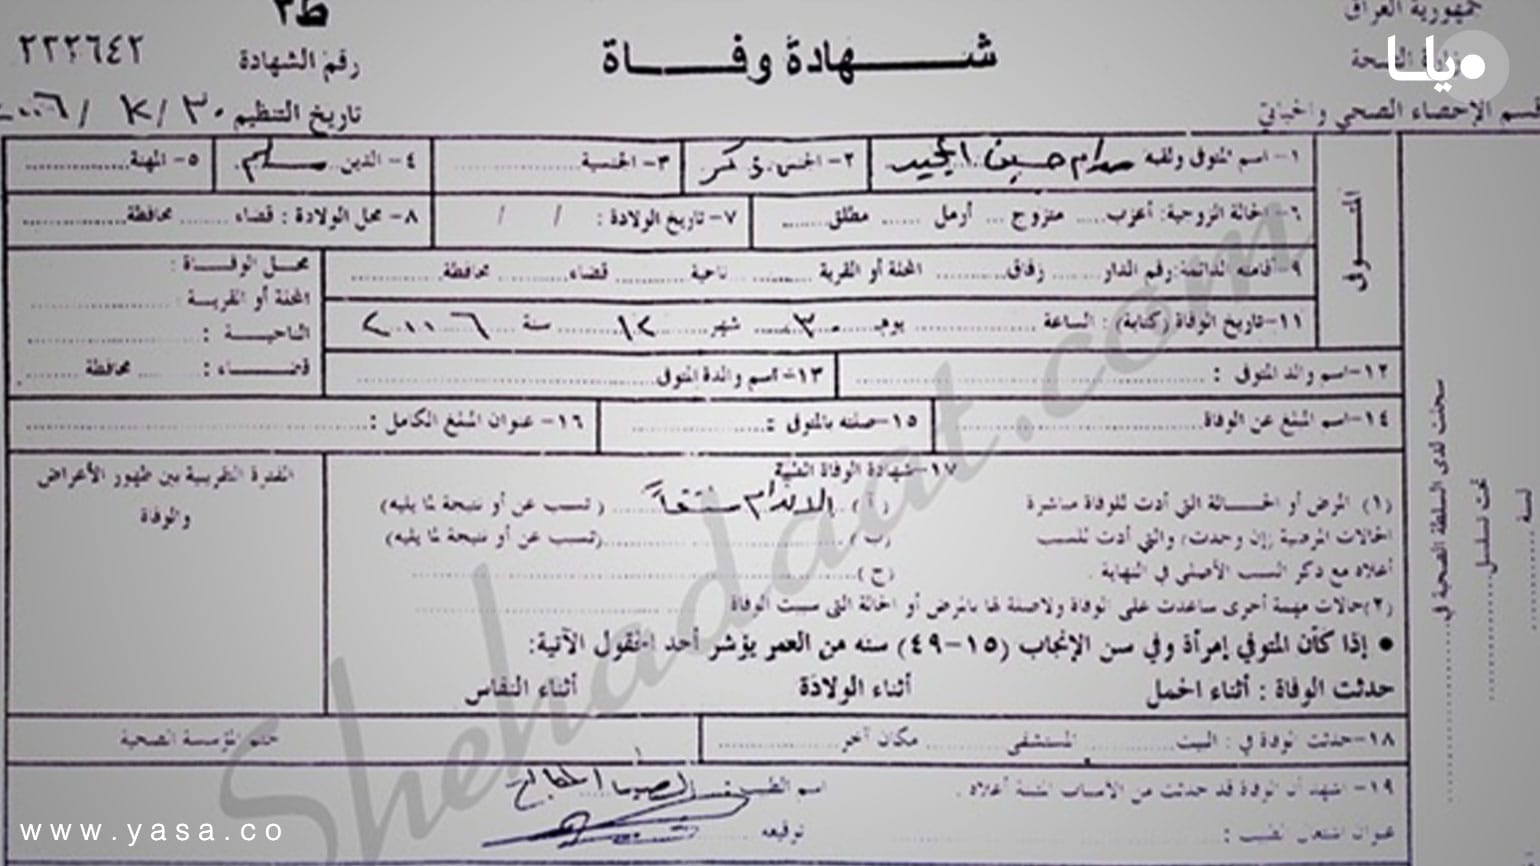 ط٣
جمهورية العراق
شهادة وفاة
وزارة الصحة
ياسا
رقم الشهادة ٢٢٢٦٤٢
قسم الإحصاء الصحي والحياتي
تاريخ التنظيم ٣٠/١٢/٢٠٠٦
المتوفى
١- اسم المتوفى ولقبه صدام حسين المجيد
٢- الجنس ذكر
٣- الجنسية
٤- الدين مسلم
٥- المهنة
٦- الحالة الزوجية: أعزب متزوج أرمل مطلق
٧- تاريخ الولادة: / /
٨- محل الولادة: قضاء محافظة
٩- اقامته الدائمة: رقم الدار زقاق المحلة أو القرية ناحية قضاء محافظة
محل الوفاة:
المحلة أو القرية:
الناحية:
قضاء: محافظة
١١- تاريخ الوفاة (كتابة): الساعة يوم ٣٠ شهر ١٢ سنة ٢٠٠٦
١٢- اسم والد المتوفى:
١٣- اسم والدة المتوفى
١٤- اسم المبلغ عن الوفاة
١٥- صلته بالمتوفى:
١٦- عنوان المبلغ الكامل:
١٧- شهادة الوفاة الطبية
الفترة التقريبية بين ظهور الأعراض
والوفاة
(١) المرض أو الحالة التي أدت للوفاة مباشرة (أ) الاعدام شنقاً (تسبب عن أو نتيجة لما يليه)
الحالات المرضية (إن وجدت) والتي أدت للسبب (ب) (تسبب عن أو نتيجة لما يليه)
أعلاه مع ذكر السبب الأصلي في النهاية. (ج)
(٢) حالات مهمة أخرى ساعدت على الوفاة ولاصلة لها بالمرض أو الحالة التي سببت الوفاة
• إذا كان المتوفي إمرأة وفي سن الإنجاب (١٥-٤٩) سنه من العمر يؤشر أحد الحقول الآتية:
حدثت الوفاة: أثناء الحمل أثناء الولادة أثناء النفاس
١٨- حدثت الوفاة في: البيت المستشفى مكان آخر
ختم المؤسسة الصحية
١٩- اشهد أن الوفاة قد حدثت من الأسباب المبينة أعلاه.
اسم الطبيب
عنوان اشتغال الطبيب:
توقيعه
سجلت لدى السلطة الصحية في
تحت تسلسل
لسنة
Shehadaat.com
www.yasa.co